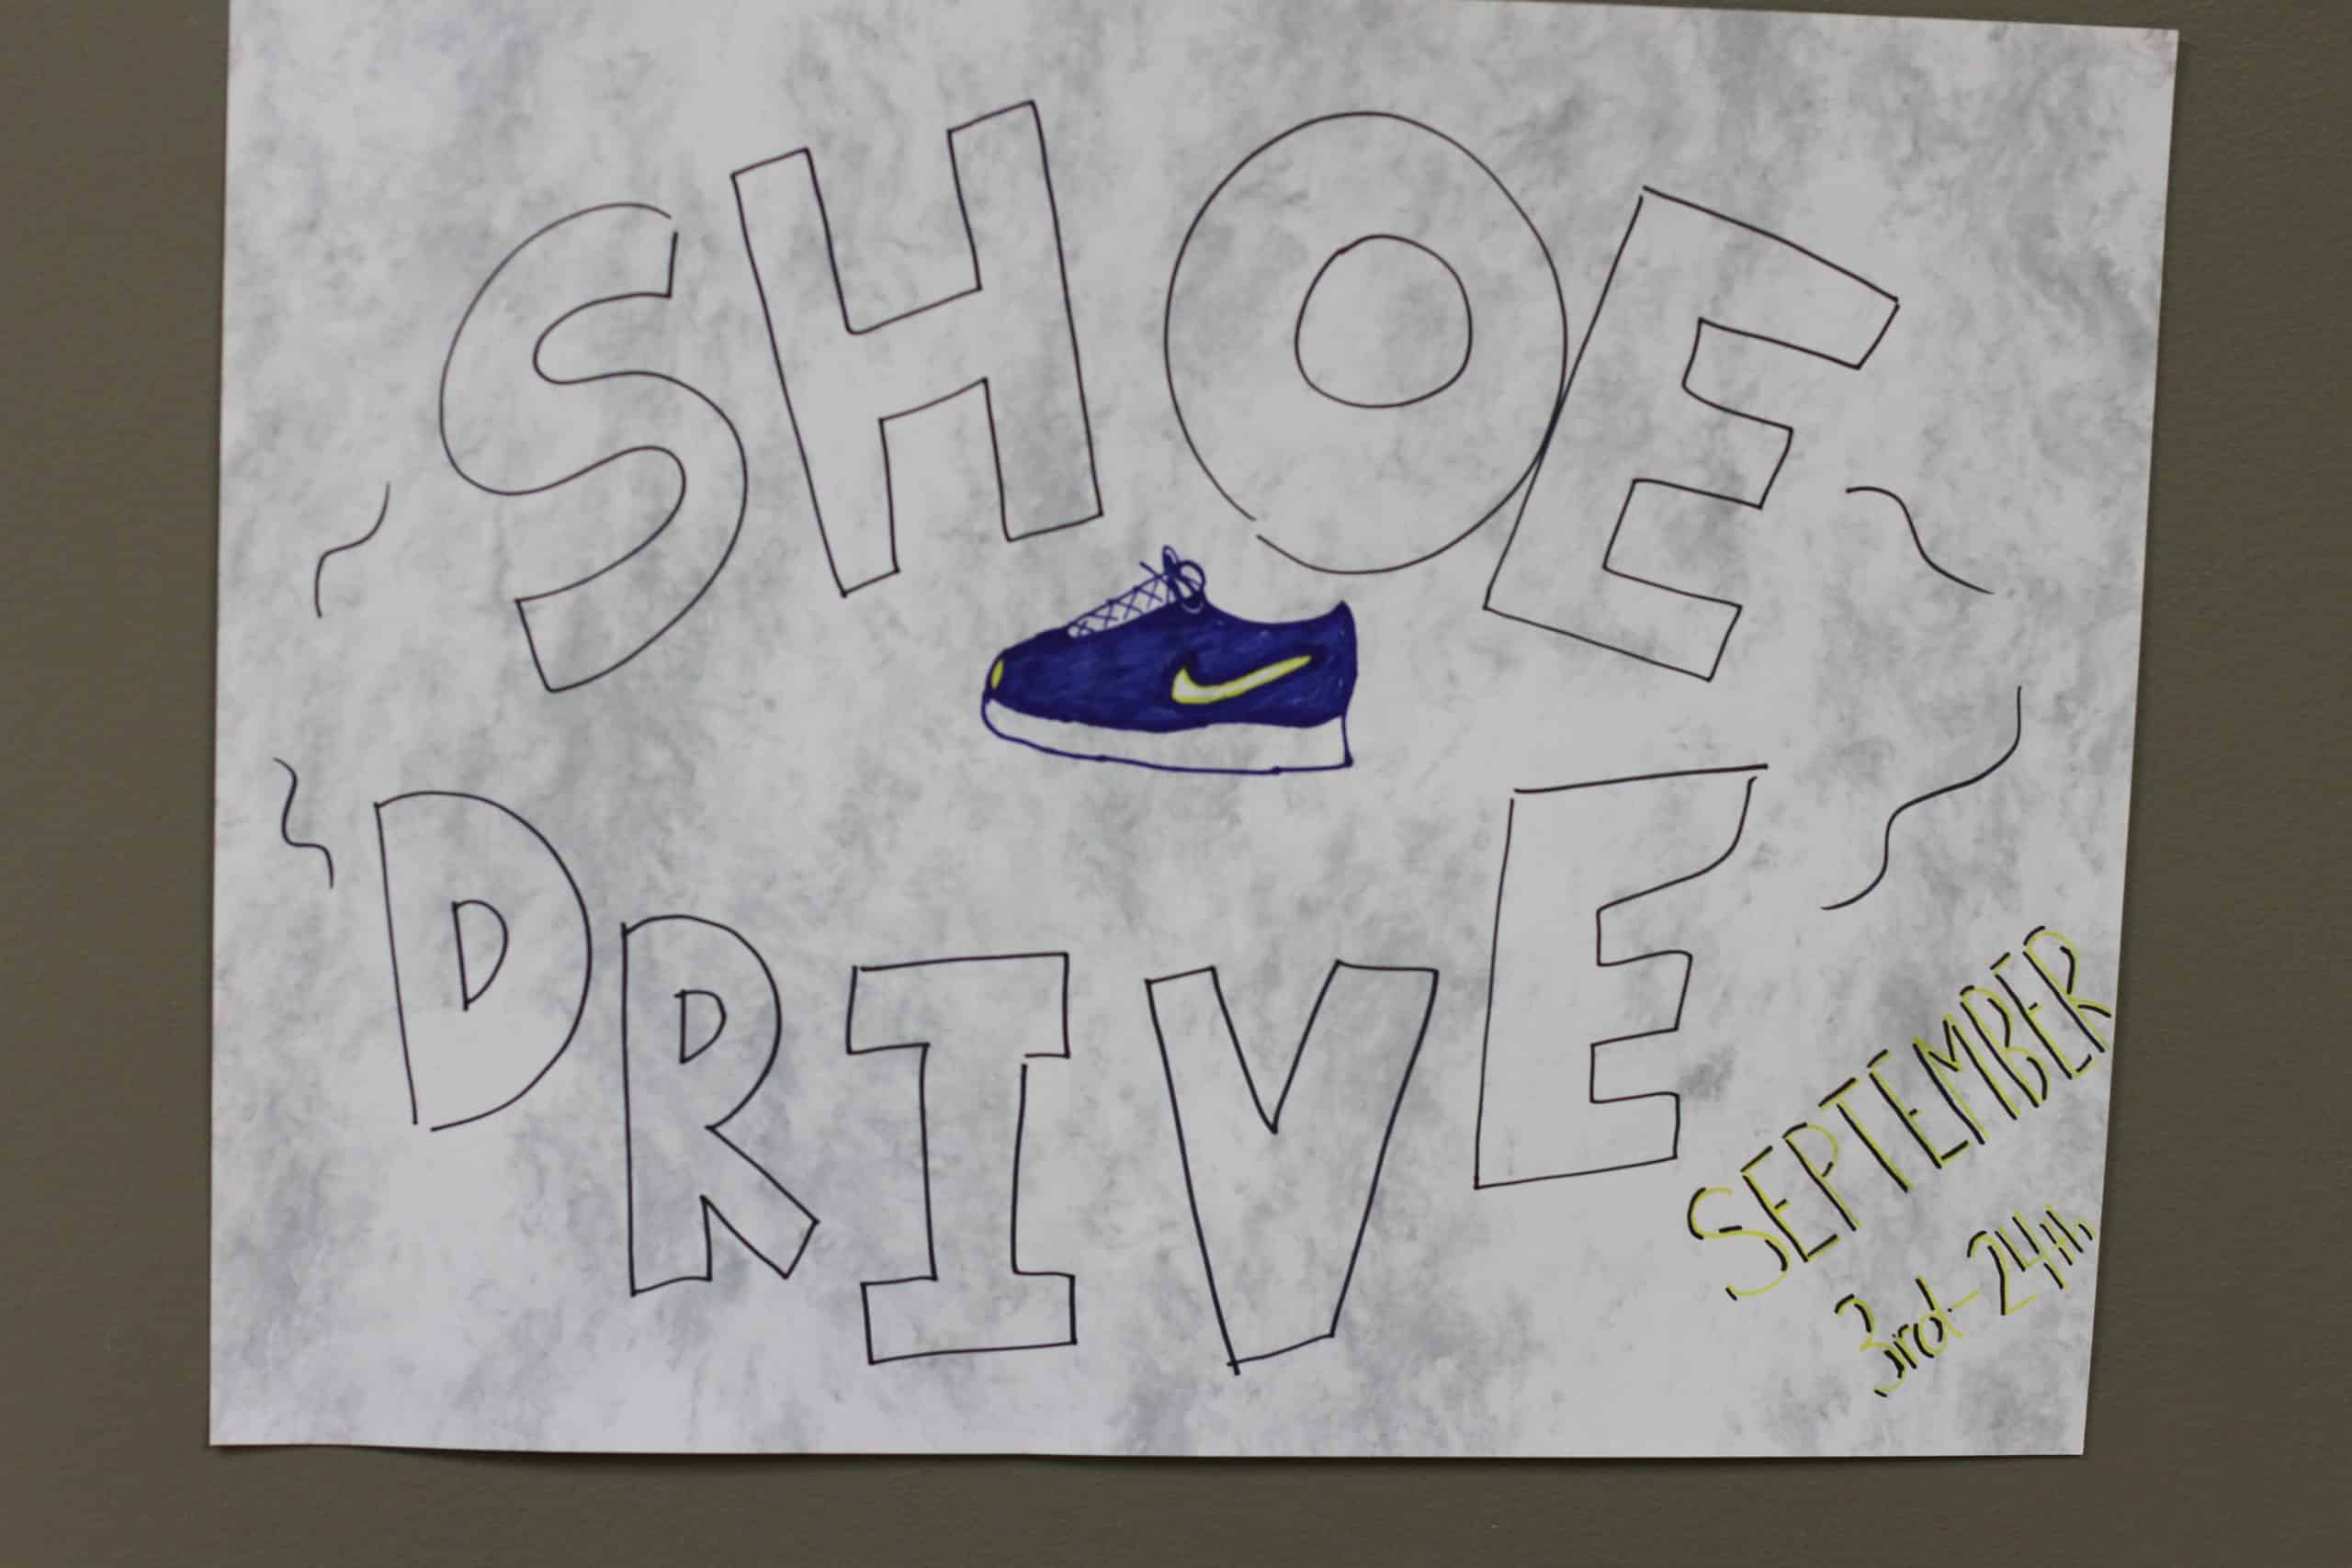 SHOE
DRIVE
SEPTEMBER
3rd-24th